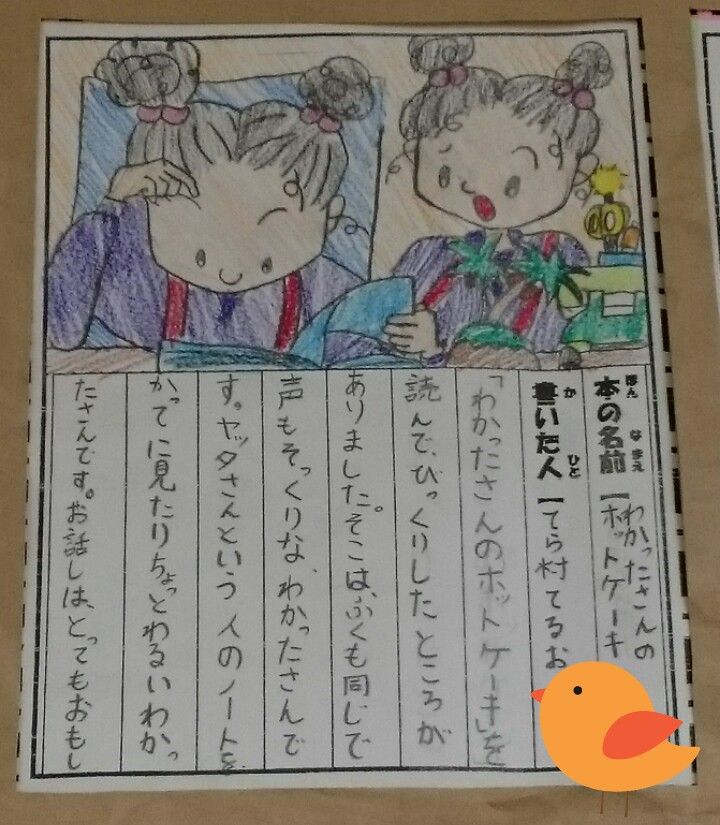 本の名前
ほん なまえ
わかったさんの
ホットケーキ
書いた人
か ひと
てら村てるお
「わかったさんのホットケーキ」を
読んで、びっくりしたところが
ありました。そこは、ふくも同じで
声もそっくりな、わかったさんで
す。ヤッタさんという人のノートを
かってに見たりちょっとわるいわかっ
たさんです。お話しは、とってもおもし